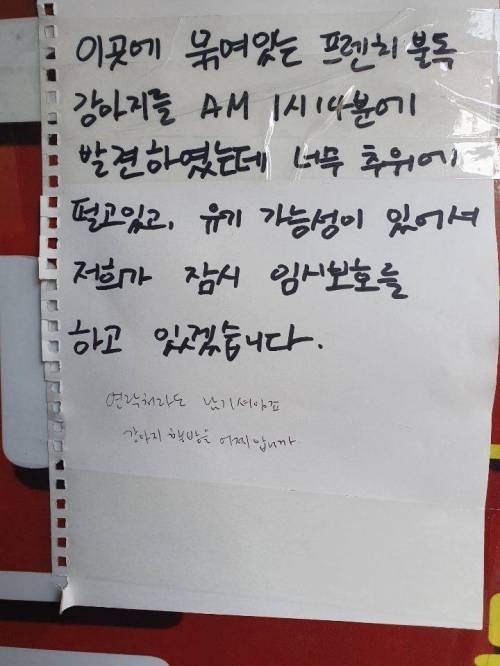 이곳에 묶여있는 프렌치 불독
강아지를 AM 1시 14분에
발견하였는데 너무 추위에
떨고있고, 유기 가능성이 있어서
저희가 잠시 임시보호를
하고 있겠습니다.
연락처라도 남기셔야죠
강아지 행방을 어찌압니까